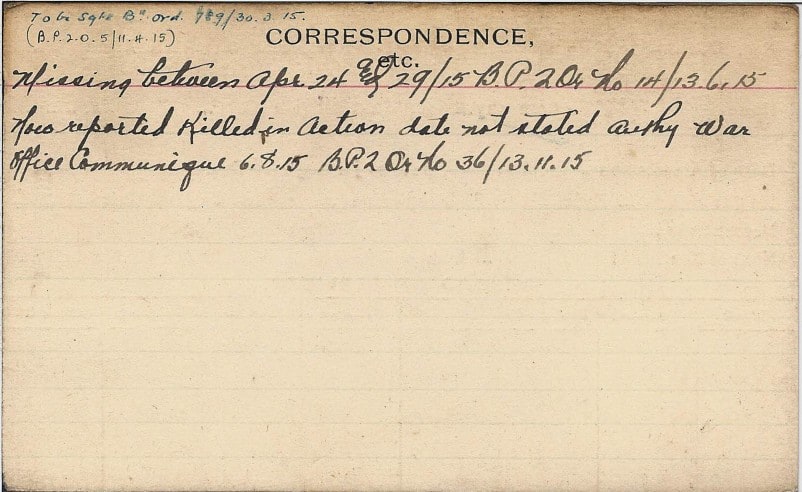 To be Sgt Bn Ord. 789/30.3.15.
(B.P. 2.O. 5/11.4.15)
CORRESPONDENCE,
etc.
Missing between Apr. 24 & 29/15 B.P. 2 Or No 14/13.6.15
Now reported Killed in Action date not stated Authy War
Office Communique 6.8.15 B.P. 2 Or No 36/13.11.15